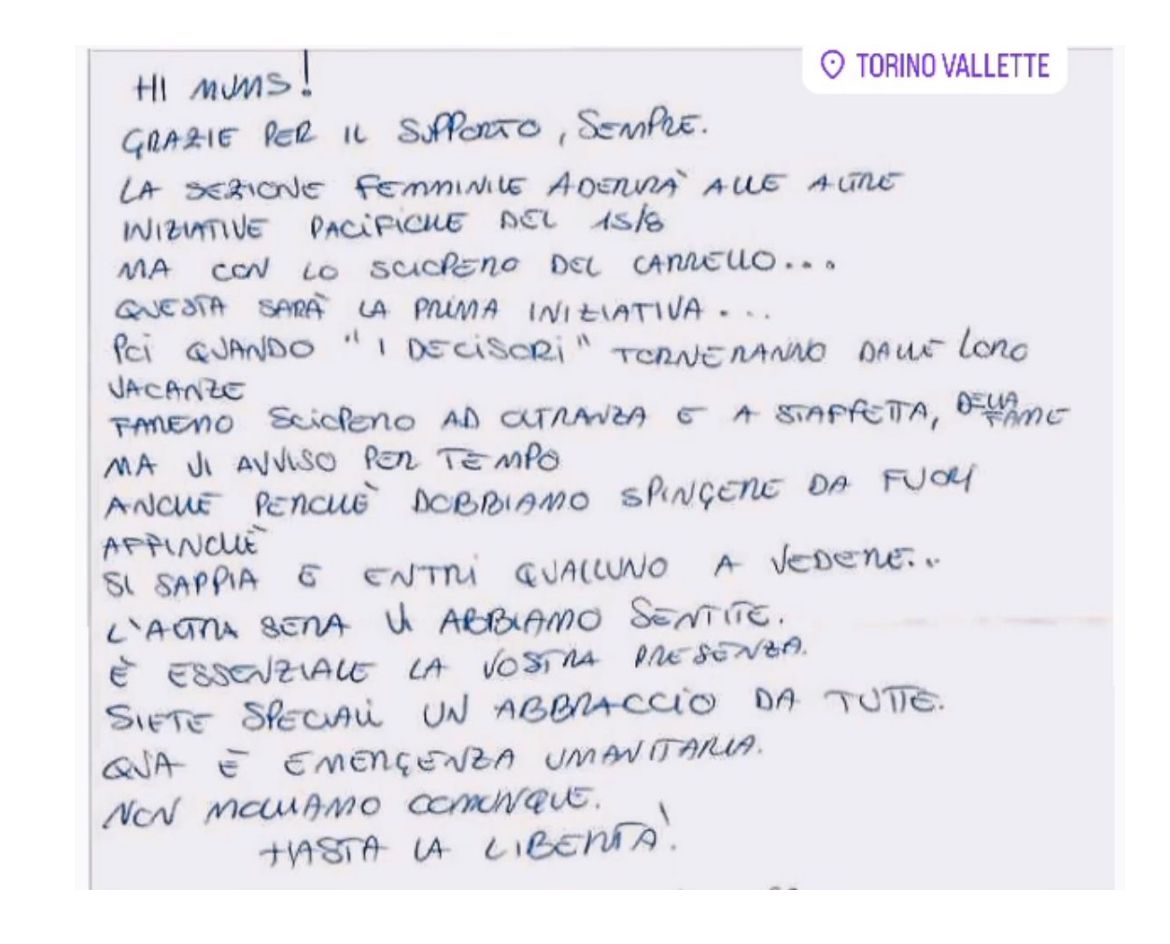 TORINO VALLETTE
HI MUMS!
GRAZIE PER IL SUPPORTO, SEMPRE.
LA SEZIONE FEMMINILE ADERIRÀ ALLE ALTRE
INIZIATIVE PACIFICHE DEL 15/8
MA CON LO SCIOPERO DEL CARRELLO...
QUESTA SARÀ LA PRIMA INIZIATIVA...
POI QUANDO "I DECISORI" TORNERANNO DALLE LORO
VACANZE
FAREMO SCIOPERO AD OLTRANZA E A STAFFETTA, DELLA FAME
MA VI AVVISO PER TEMPO
ANCHE PERCHÈ DOBBIAMO SPINGERE DA FUORI
AFFINCHÈ
SI SAPPIA E ENTRI QUALCUNO A VEDERE...
L'ALTRA SERA VI ABBIAMO SENTITE.
È ESSENZIALE LA VOSTRA PRESENZA.
SIETE SPECIALI UN ABBRACCIO DA TUTTE.
QUA È EMERGENZA UMANITARIA.
NON MOLLIAMO COMUNQUE.
HASTA LA LIBERTÀ!